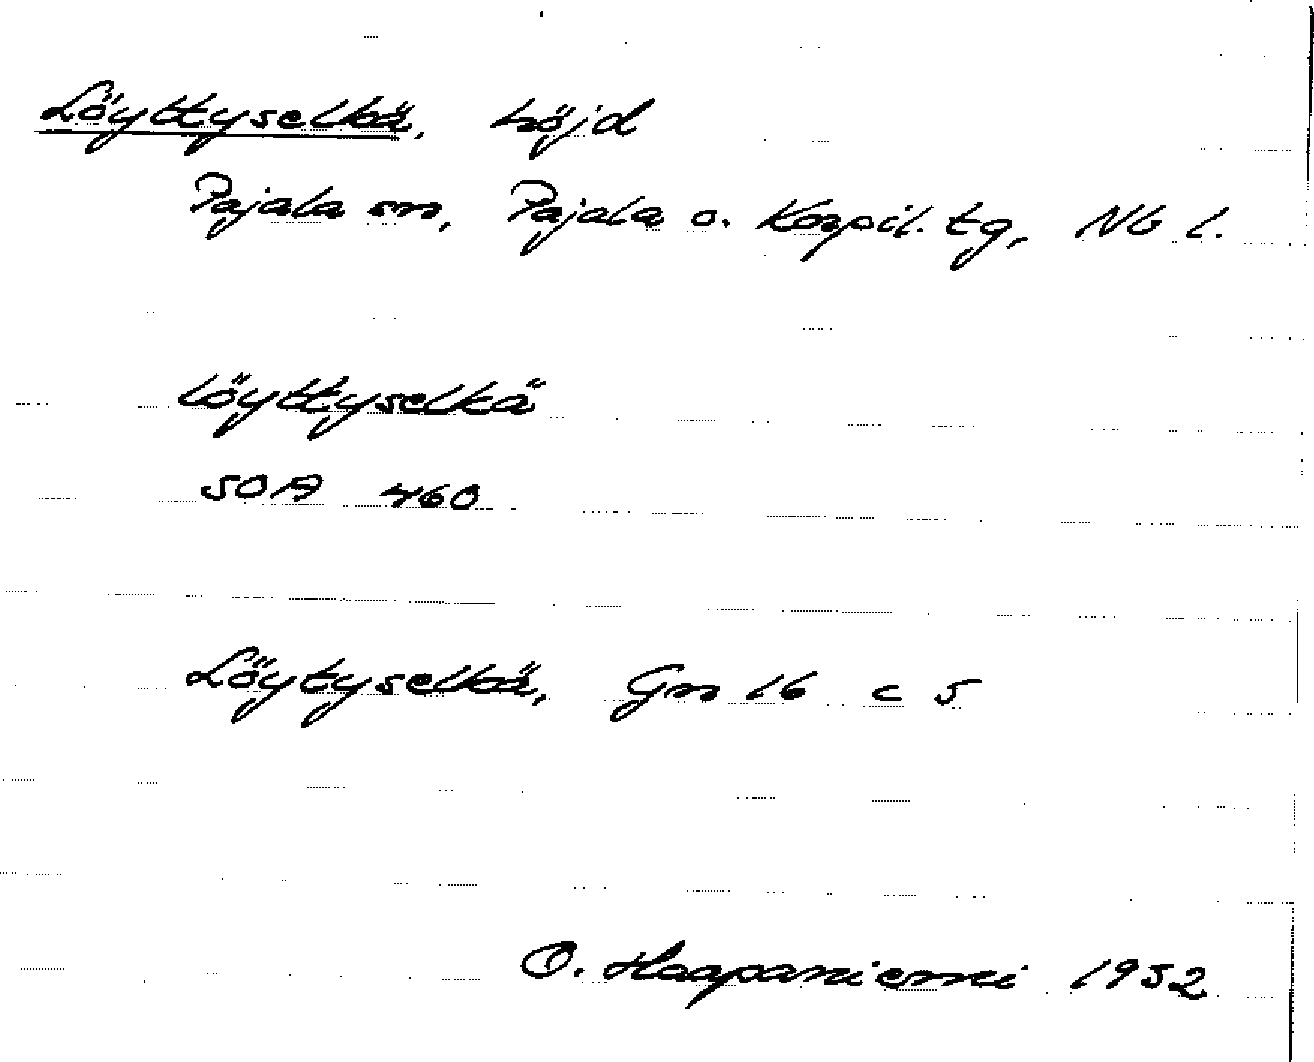 Löyttyselkä, höjd
Pajala sn, Pajala o. Korpil. tg, Nb l.
löyttyselkä
SOA 460
Löytyselkä, Gn 16 c 5
O. Haapaniemi 1952